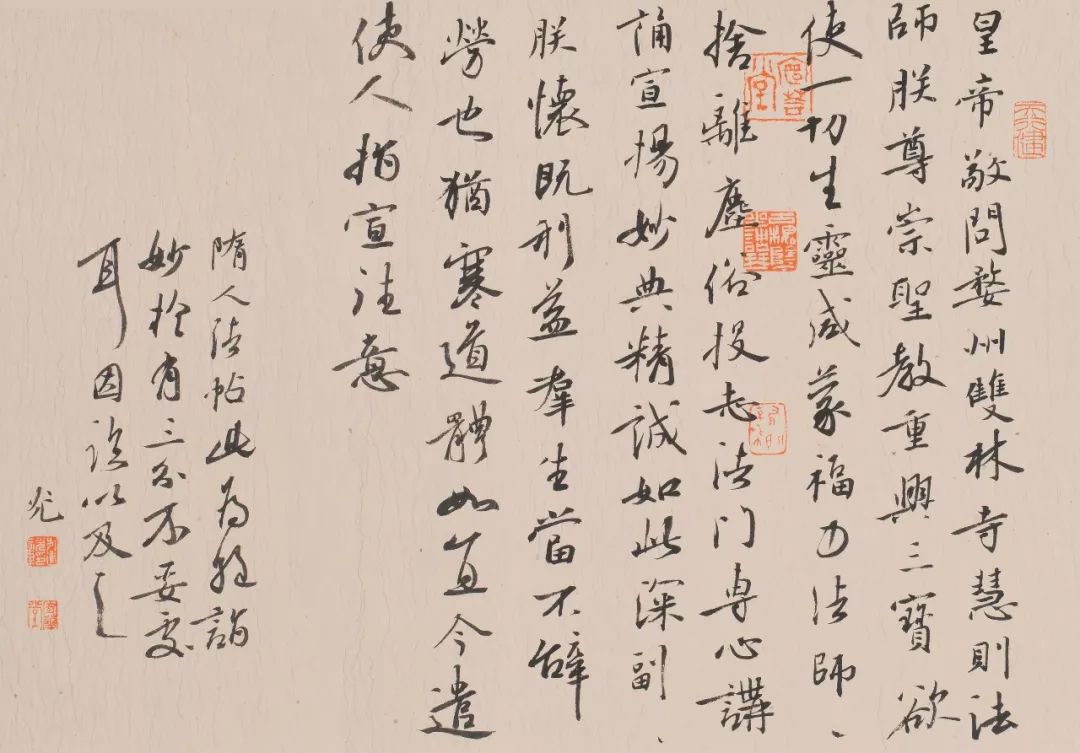 皇帝敬問婺州雙林寺慧則法
師朕尊崇聖教重興三寶欲
使一切生靈咸蒙福力法師、
捨離塵俗投志法門專心講
誦宣揚妙典精誠如此深副、
朕懷既利益羣生當不辭
勞也猶寒道體如宜今遣
使人指宣往意
隋人法帖此為詣
妙於三不妥處
耳因以及之
天行健